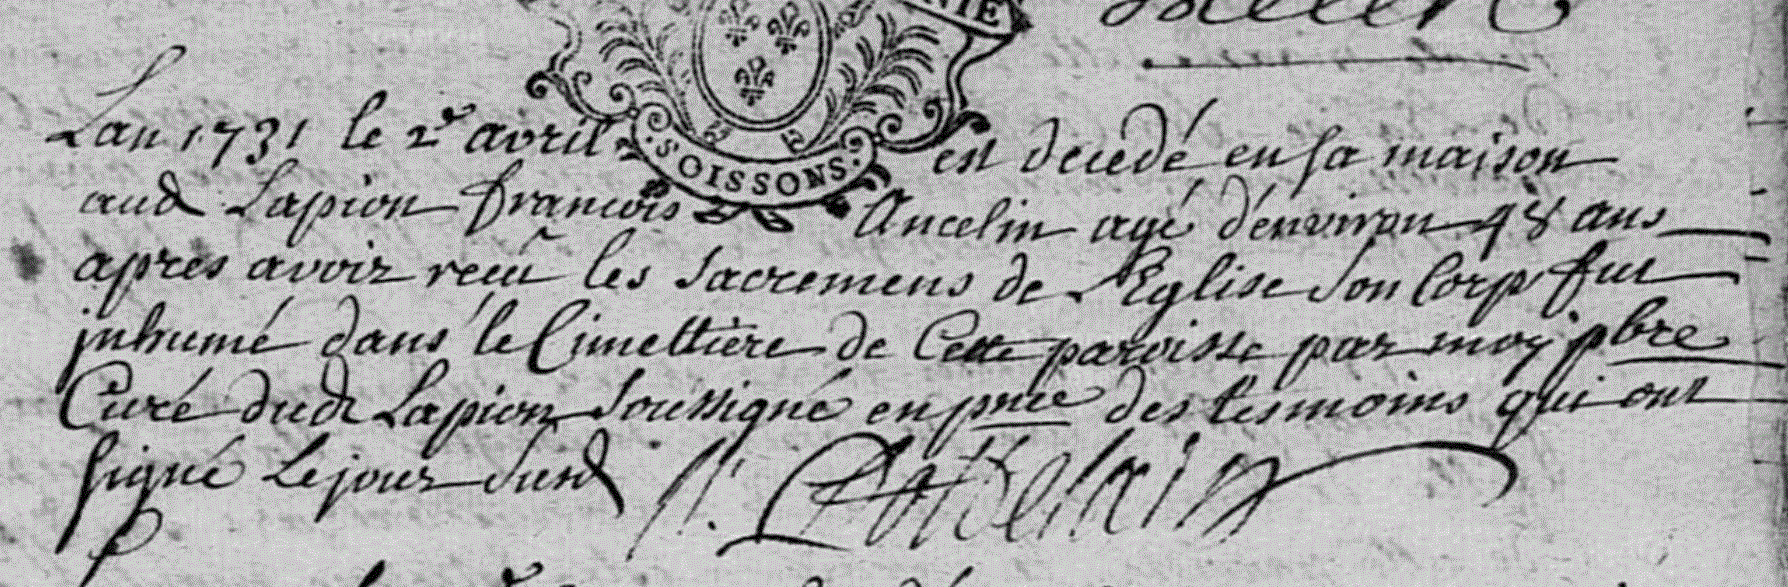 NIE
SOISSONS.
Lan 1731 le 2e avril est decedé en sa maison
aud Lapion francois Ancelin agé d'environ 48 ans
apres avoir recu les sacremens de l'Eglise son Corp fut
inhumé dans le Cimettiere de Cette paroisse par moy pbre
Curé dud Lapion soussigné en pnce des tesmoins qui ont
signé le jour susd